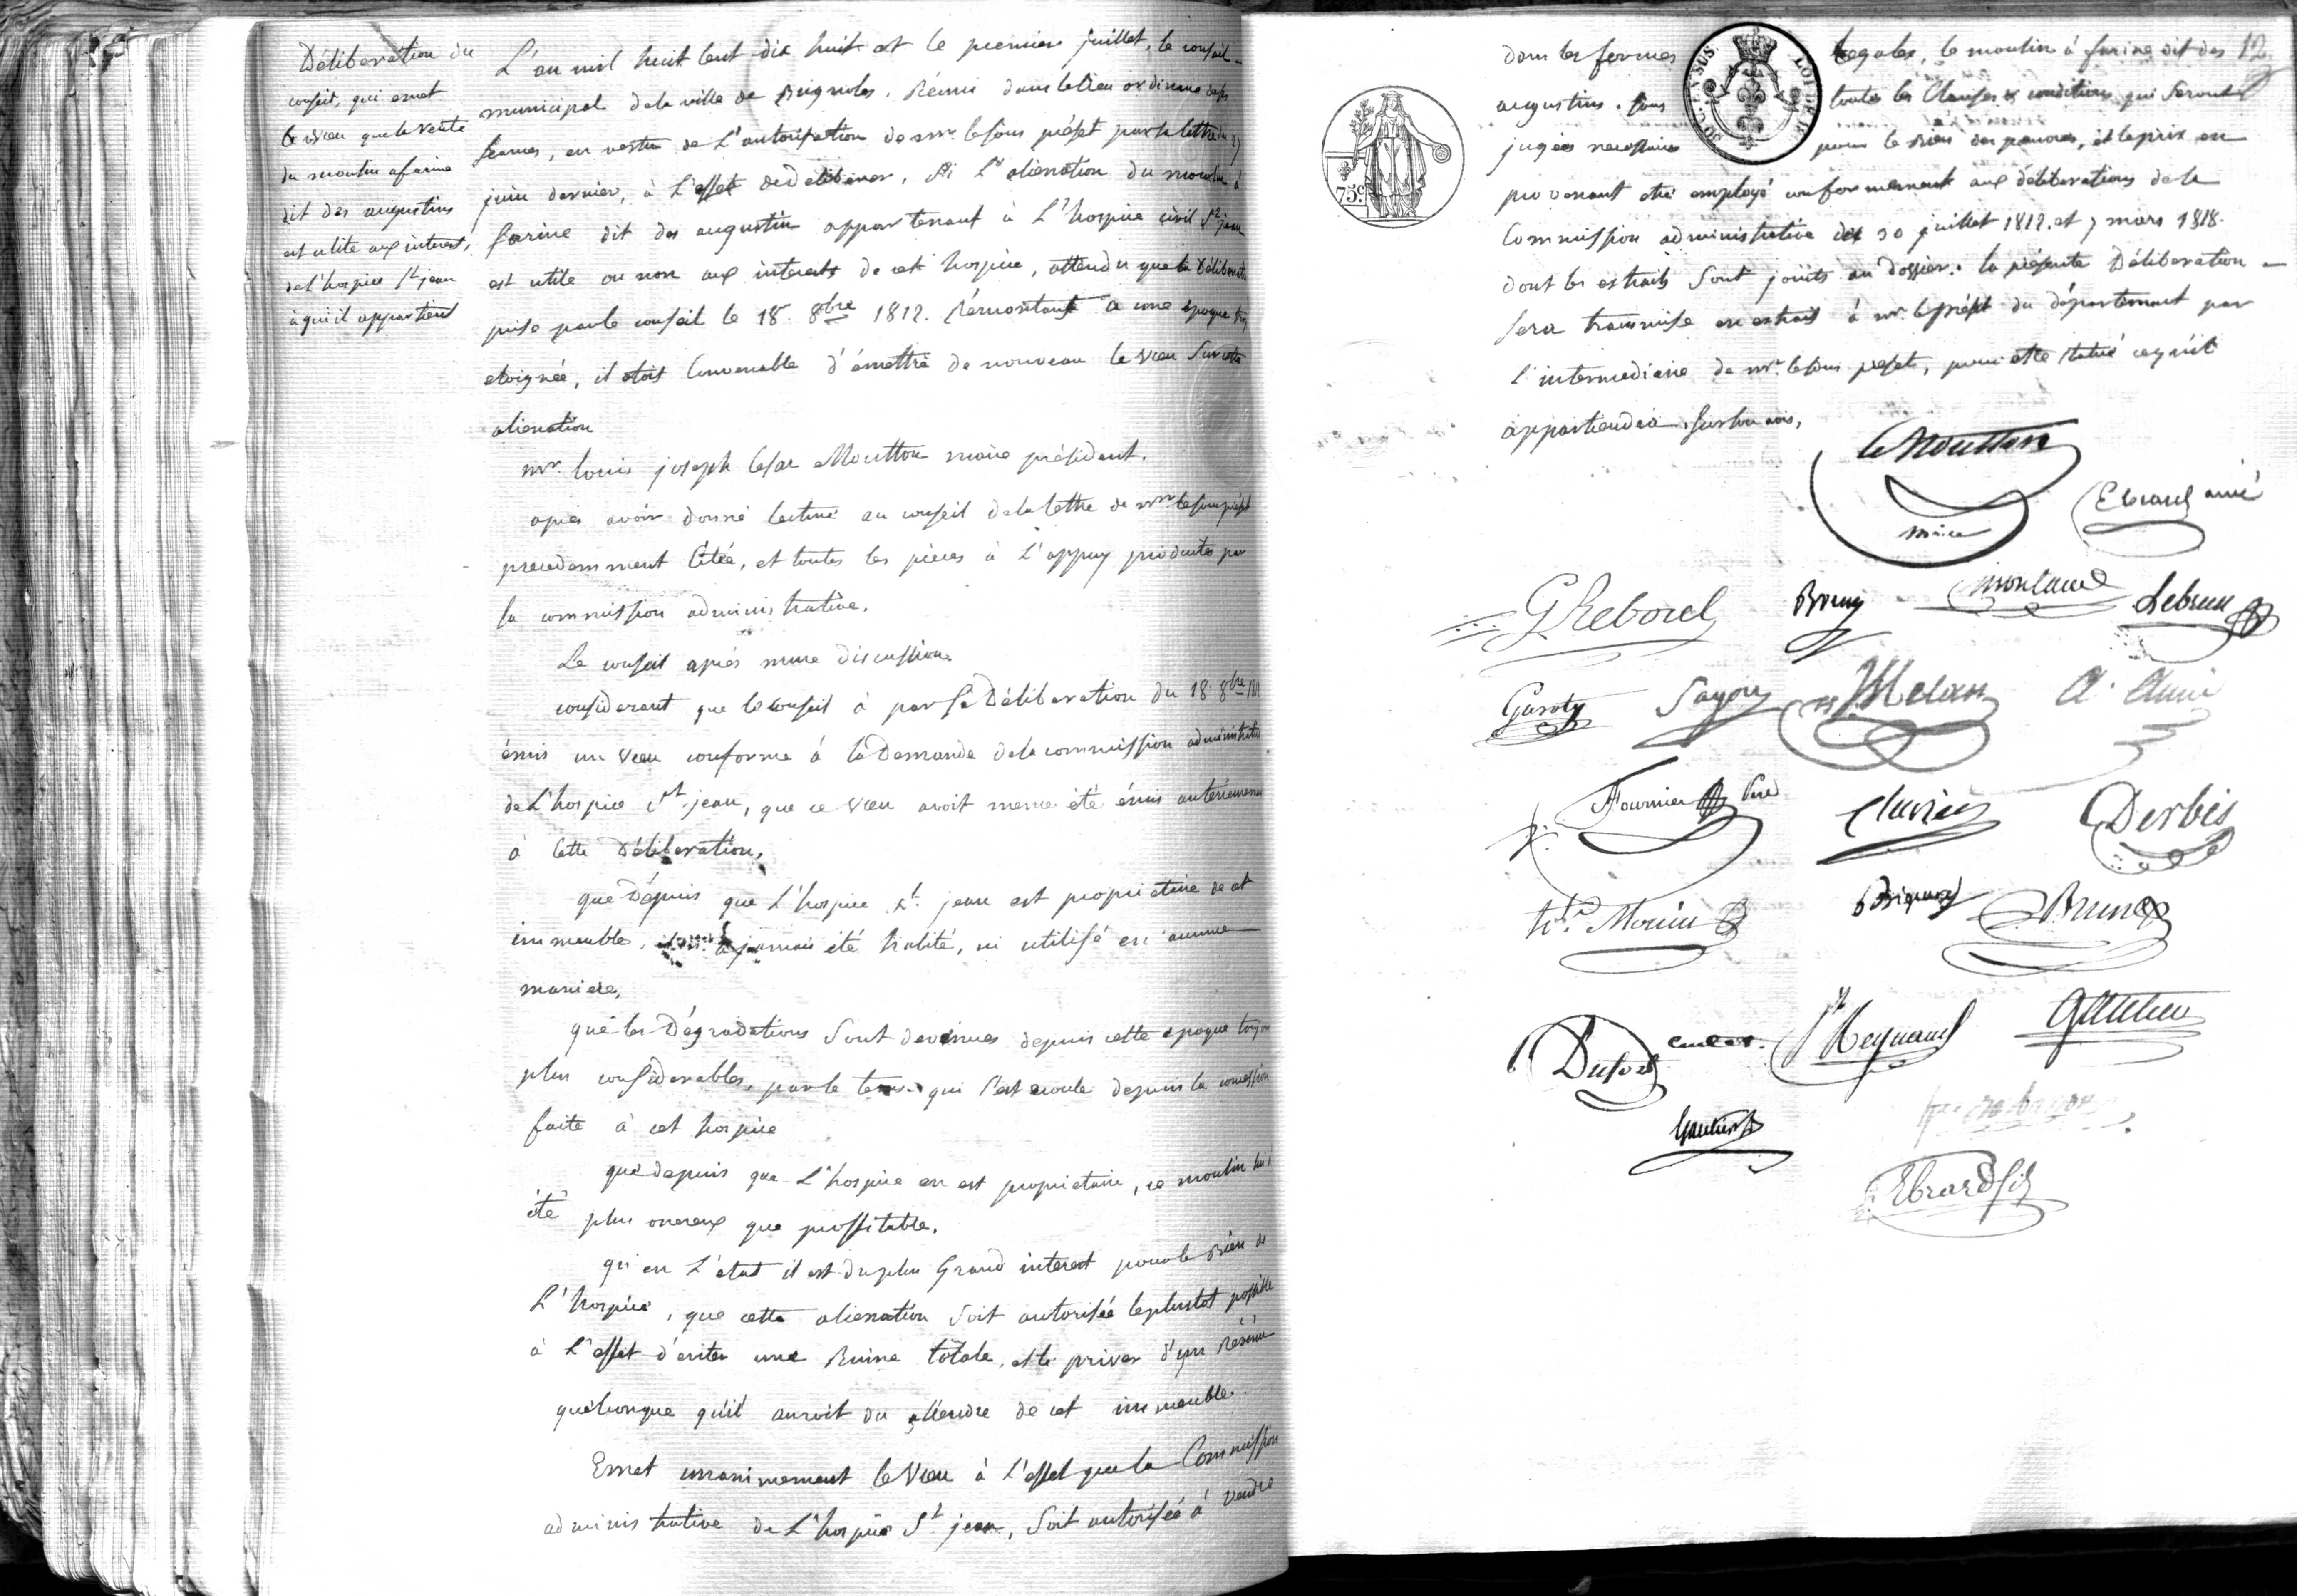 Déliberation du
conseil, qui emet
le vœu que la vente
du moulin a farine
dit des augustins
est utile aux interest,
de l'hospice st jean
à qui il appartient
L'an mil huit cent dix huit et le premier juillet, le conseil
municipal de la ville de Brignoles, Réuni dans le lieu ordinaire de ses
séances, en vertu de L'autorisation de mr le sous préfet par sa lettre du 27
juin dernier, à L'effet de deliberer, si l'alienation du moulin à
farine dit des augustin appartenant à L'hospice civil st jean
est utile ou non aux interests de cet hospice, attendu que la Délibération
prise par le conseil le 18 8bre 1812. Rémontant a une époque trop
eloignée, il etoit Convenable d'émettre de nouveau le vœu sur cette
alienation
mr. louis joseph Cesar Moutton maire président.
après avoir donné lecture au conseil de la lettre de mr le sous préfet
precedemment Citée, et toutes les pièces à L'appuy produites par
la commission administrative.
Le conseil après mure discussion
considerant que le conseil à par sa Déliberation du 18 8bre 1812
émis un vœu conforme à la Demande de la commission administrative
de L'hospice st jean, que ce vœu avoit meme été émis anterieurement
à Cette Déliberation,
que Dépuis que L'hospice st. jean est proprietaire de cet
immeuble, il n'a jamais été habité, ni utilisé en aucune
maniere,
que les Dégradations Sont devenues depuis cette epoque toujours
plus considerables, par le tems qui s'est ecoulé depuis la concession
faite à cet hospice
que depuis que L'hospice en est proprietaire, ce moulin lui a
été plus onereux que proffitable.
qu'en L'etat il est du plus Grand interest pour le Bien de
L'hospice, que cette alienation soit autorisée le plustot possible
à L'effet d'eviter une Ruine totale, et le priver d'un Révénu
quelconque qu'il auroit du attendre de cet immeuble.
Emet unanimement le Vœu à L'effet que la Commission
administrative de L'hospice St. jean, soit autorisée à vendre
12
dans les formes Legales, le moulin à farine dit des
augustins. sous toutes les Clauses & conditions qui seront
jugées necessaires pour le Bien des pauvres, et le prix en
provenant etre employé conformement aux déliberations de la
Commission administrative des 30 juillet 1812. et 7 mars 1818.
dont les extraits sont joints au Dossier. la présente Déliberation
sera transmise en extrait à mr. le préfet du département par
L'intermediaire de mr. le sous prefet, pour etre statué ce qu'il
appartiendra sur son avis,
75.c
LOI DE 1816
le Moutton
maire
Ebrard ainé
G Reboul
Bremy
montaud
Lebrun
Garoty
Sayou
Fournier
Clavier
Derbès
hte. Morin
Brun
Dufort
Jh Reynaud
Gautier
Ebrard fils